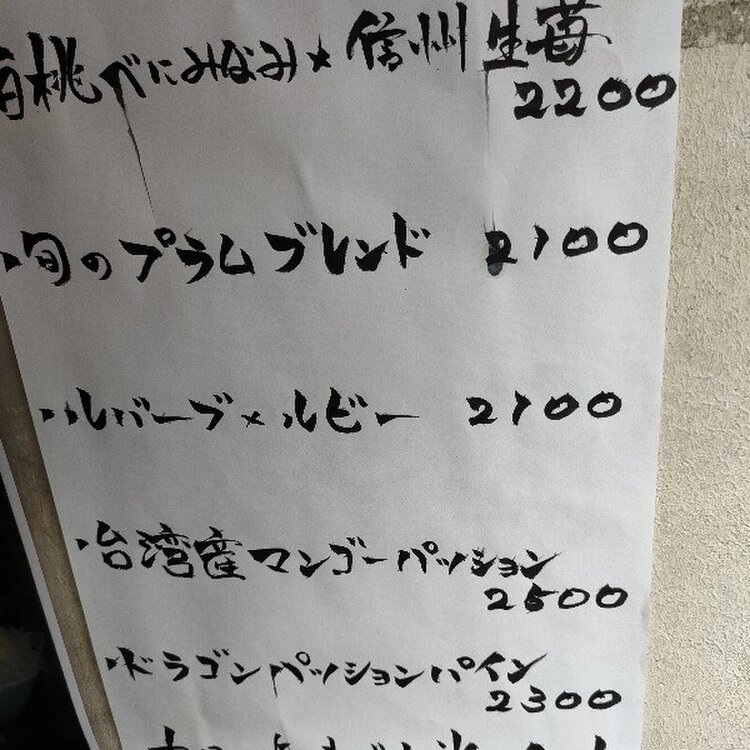 桃べにみなみ×信州生苺
2200
・旬のプラムブレンド 2100
・ルバーブ×ルビー 2100
・台湾産マンゴーパッション
2500
・ドラゴンパッションパイン
2300